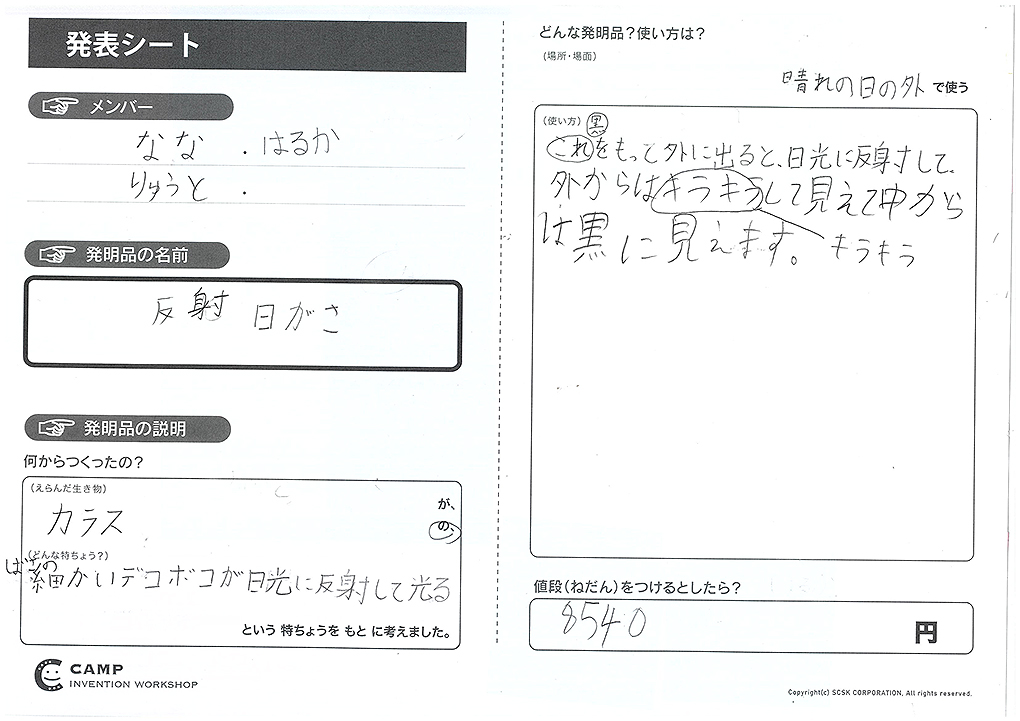 発表シート
メンバー
なな ・はるか
りゅうと ・
発明品の名前
反射 日がさ
発明品の説明
何からつくったの?
(えらんだ生き物)
カラス
が、
の、
(どんな特ちょう?)
ばさの
細かいデコボコが日光に反射して光る
という 特ちょうを もと に考えました。
CAMP
INVENTION WORKSHOP
どんな発明品?使い方は?
(場所・場面)
晴れの日の外 で使う
(使い方) 黒
これをもって外に出ると、日光に反射して、
外からはキラキラして見えて中から
は黒に見えます。 キラキラ
値段(ねだん)をつけるとしたら?
8540
円
Copyright(c) SCSK CORPORATION, All rights reserved.